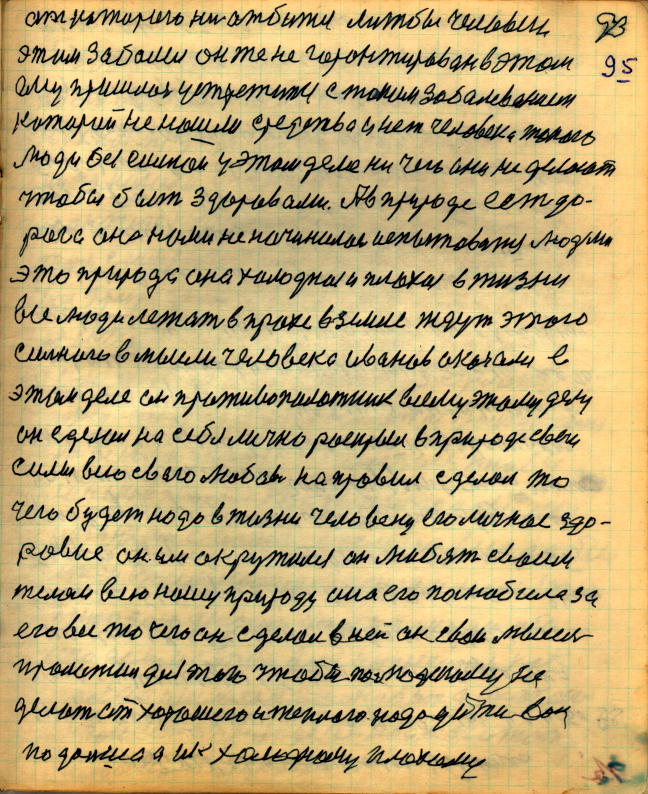 от которого ни отбыться лишбы человек 93
этим заболел он же не горонтирован в этом 95
ему пришлось устретитс с таким заболеванием
который не нашли средства и нет человека такого
люди без силной у этом деле ни чего они не делоют
чтобы быть здоровами. А в природе есть до-
рога она нами не начиналас испытоватся людьми
это природа она холодная и плохая в жизни
все люди лежат в прахе в земле ждут этого
силного в мысли человека Иванов в
этом деле он противополотник всему этому делу
он сделал на себя лично роскрыл в природе свои
силы всю свою любовь направил сделал то
чего будет надо в жизни человеку его личное здо-
ровие он им окружился он любит своим
телом всю нашу природу она его полюбила за
его все то чего он сделал в ней он свои мысли
проложил для этого чтобы по людскому не
делать от хорошего и теплого надо уйти
подойти к холодному плохому